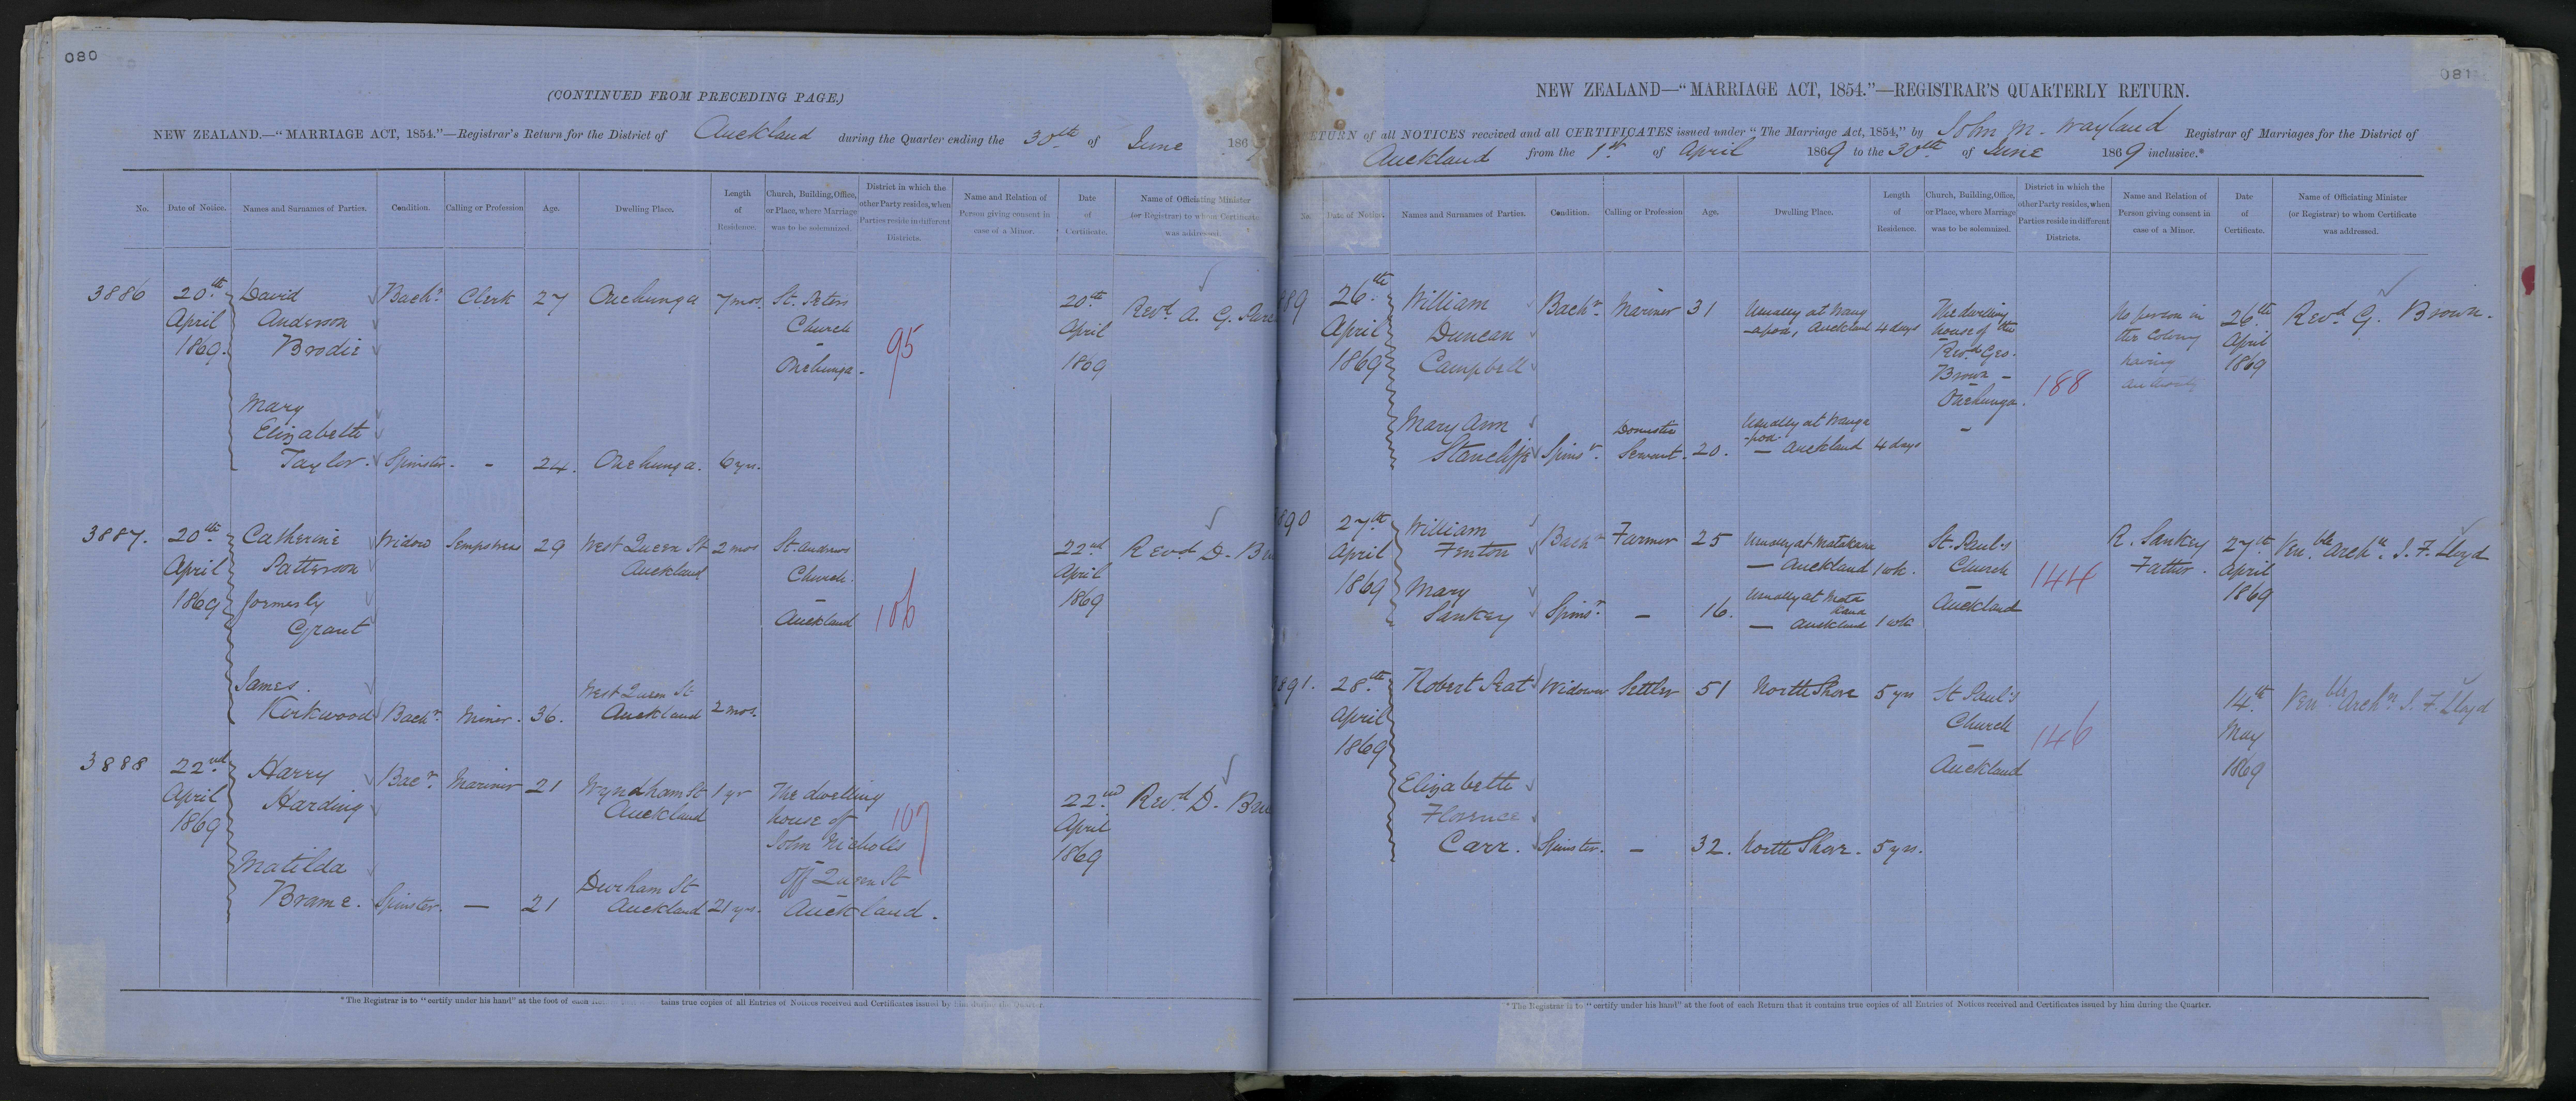 080
(CONTINUED FROM PRECEDING PAGE.)
NEW ZEALAND.—"MARRIAGE ACT, 1854."—Registrar's Return for the District of Auckland during the Quarter ending the 30th of June 186
No. Date of Notice. Names and Surnames of Parties. Condition. Calling or Profession Age. Dwelling Place. Length of Residence. Church, Building, Office, or Place, where Marriage was to be solemnized. District in which the other Party resides, when Parties reside in different Districts. Name and Relation of Person giving consent in case of a Minor. Date of Certificate. Name of Officiating Minister (or Registrar) to whom Certificate was addressed.
3886 20th David Bachr. Clerk 27 Onehunga 7 mos. St. Peters 20th Revd. A. G.
April Anderson Church April
1869. Brodie — 95 1869
Onehunga.
Mary
Elizabeth
Taylor. Spinster. - 24. Onehunga. 6 yrs.
3887. 20th Catherine Widow Sempstress 29 West Queen St 2 mos St. Andrews 22nd Revd D.
April Patterson Auckland Church. April
1869 formerly — 1869
Grant Auckland 106
James
Kirkwood Bachr. Miner. 36. West Queen St Auckland 2 mos.
3888 22nd Harry Bacr. Mariner 21 Wyndham St 1 yr The dwelling 22nd Revd D.
April Harding Auckland house of 107 April
1869 John Nicholls 1869
Matilda off Queen St
Brame. Spinster. — 21 Durham St Auckland 21 yrs. Auckland.
*The Registrar is to "certify under his hand" at the foot of each tains true copies of all Entries of Notices received and Certificates issued by him during the Quarter.
081
NEW ZEALAND—"MARRIAGE ACT, 1854."—REGISTRAR'S QUARTERLY RETURN.
ETURN of all NOTICES received and all CERTIFICATES issued under "The Marriage Act, 1854," by John M. Wayland Registrar of Marriages for the District of
Auckland from the 1st of April 1869 to the 30th of June 1869 inclusive.*
No. Date of Notice. Names and Surnames of Parties. Condition. Calling or Profession Age. Dwelling Place. Length of Residence. Church, Building, Office, or Place, where Marriage was to be solemnized. District in which the other Party resides, when Parties reside in different Districts. Name and Relation of Person giving consent in case of a Minor. Date of Certificate. Name of Officiating Minister (or Registrar) to whom Certificate was addressed.
889 26th William Bachr. Mariner 31 Usually at Wang The dwelling No person in 26th Revd G. Brown.
April Duncan -apoa, Auckland 4 days house of the the Colony April
1869 Campbell Revd Geo. having 1869
Brown - 188 authority
Onehunga.
Mary Ann Domestic Usually at Wanga
Stancliffe Spinsr. Servant. 20. -poa- — Auckland 4 days
890 27th William Bachr Farmer 25 Usually at Matakana St. Paul's R. Sankey 27th Venble Archn. J. F. Lloyd
April Fenton — Auckland 1 wk. Church Father. April
1869 Mary Usually at Mata — 144 1869
Sankey Spinsr. — 16. kana — Auckland 1 wk Auckland
891. 28th Robert Peat Widower Settler 51 North Shore 5 yrs St Paul's 14th Venble Archn. J. F. Lloyd
April Church May
1869 — 146 1869
Auckland
Elizabeth
Florence
Carr. Spinster. — 32. North Shore. 5 yrs.
*The Registrar is to "certify under his hand" at the foot of each Return that it contains true copies of all Entries of Notices received and Certificates issued by him during the Quarter.